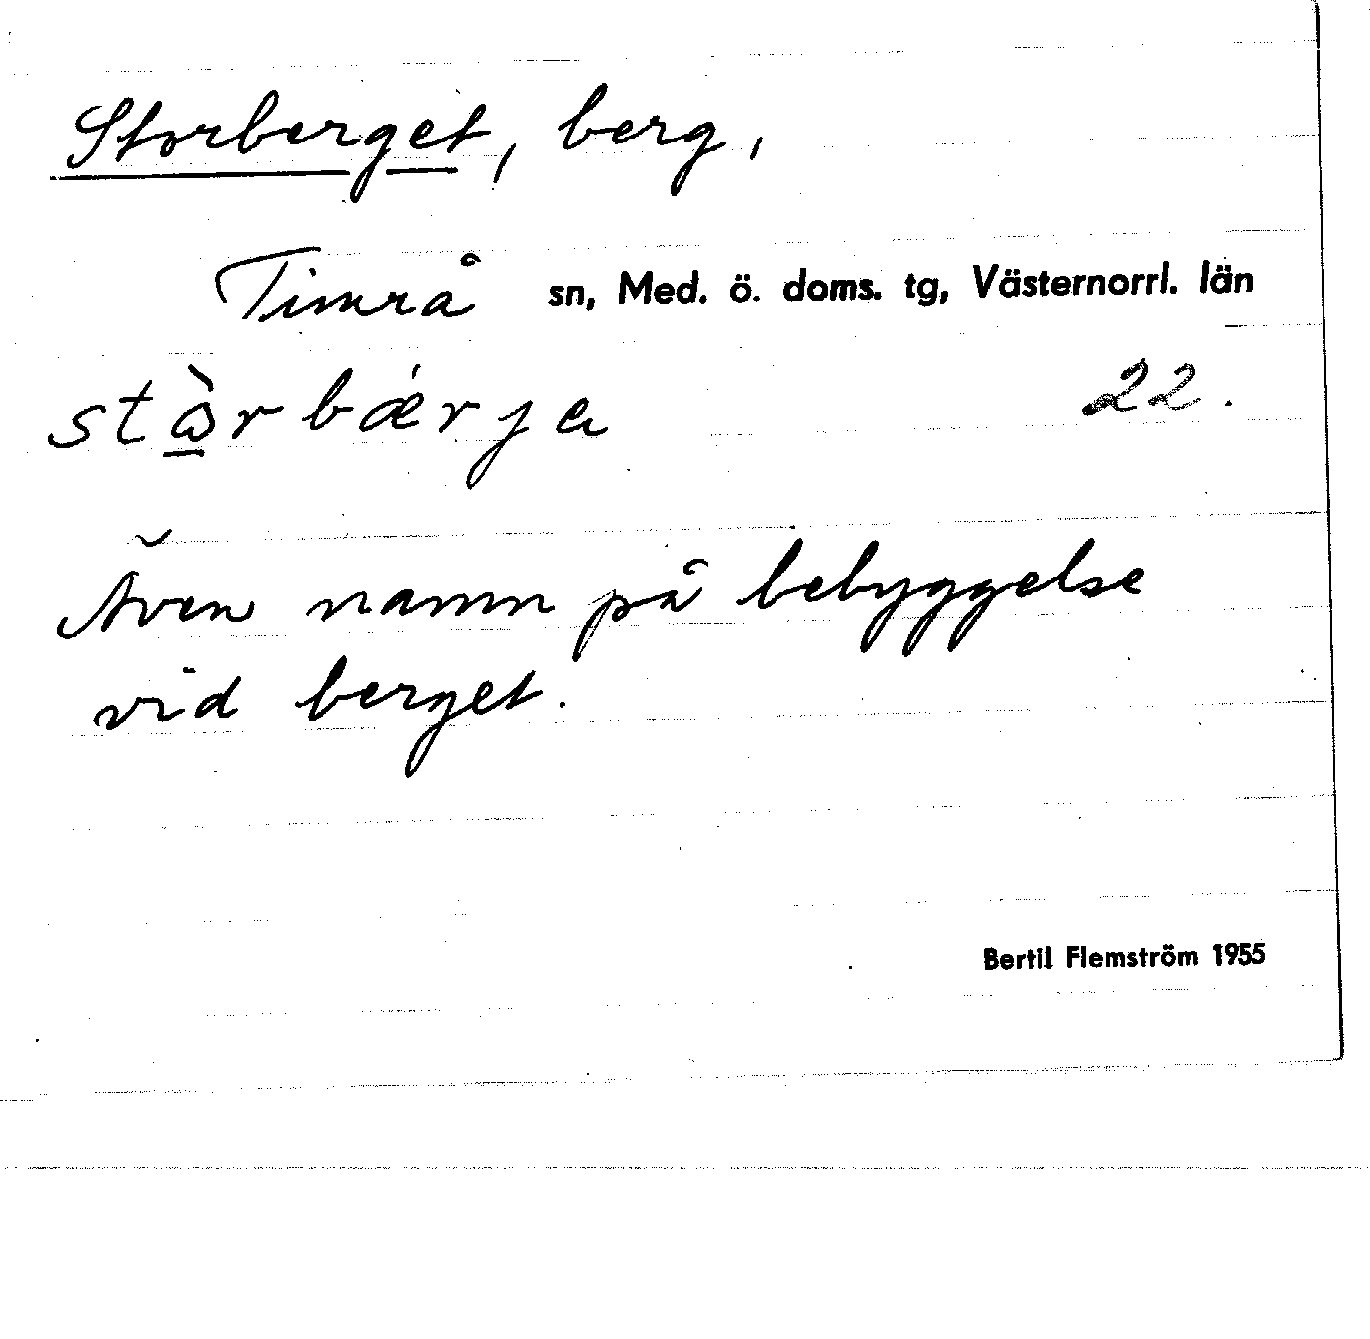 Storberget, berg,
Timrå sn, Med. ö. doms. tg, Västernorrl. län
stὼ̱rbǽrja 22.
Även namn på bebyggelse
vid berget.
Bertil Flemström 1955